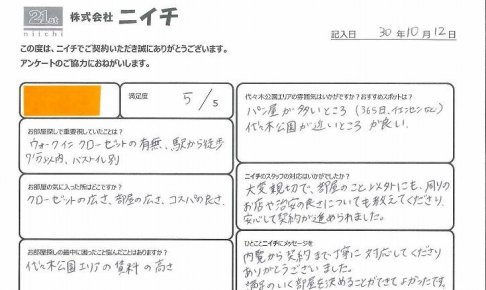 21st
niitchi
株式会社 ニイチ
この度は、ニイチでご契約いただき誠にありがとうございます。
アンケートのご協力におねがいします。
記入日 30年10月12日
満足度 5/5
お部屋探しで重要視していたことは？
ウォークインクローゼットの有無、駅から徒歩
7分以内、バストイレ別
お部屋の気に入った所はどこですか？
クローゼットの広さ、部屋の広さ、コスパの良さ、
お部屋探しの最中に困ったこと悩んだことはありますか？
代々木公園エリアの賃料の高さ
代々木公園エリアの雰囲気はいかがですか？おすすめスポットは？
パン屋が多いところ（365日、
代々木公園が近いところが良い。
ニイチのスタッフの対応はいかがでしたか？
大変親切で、部屋のこと以外にも、周りの
お店や治安の良さについても教えてくださり、
安心して契約が進められました。
ひとことニイチにメッセージを
内覧から契約まで丁寧に対応してくださり
ありがとうございました。
満足のいく部屋を決めることができてよかったです。